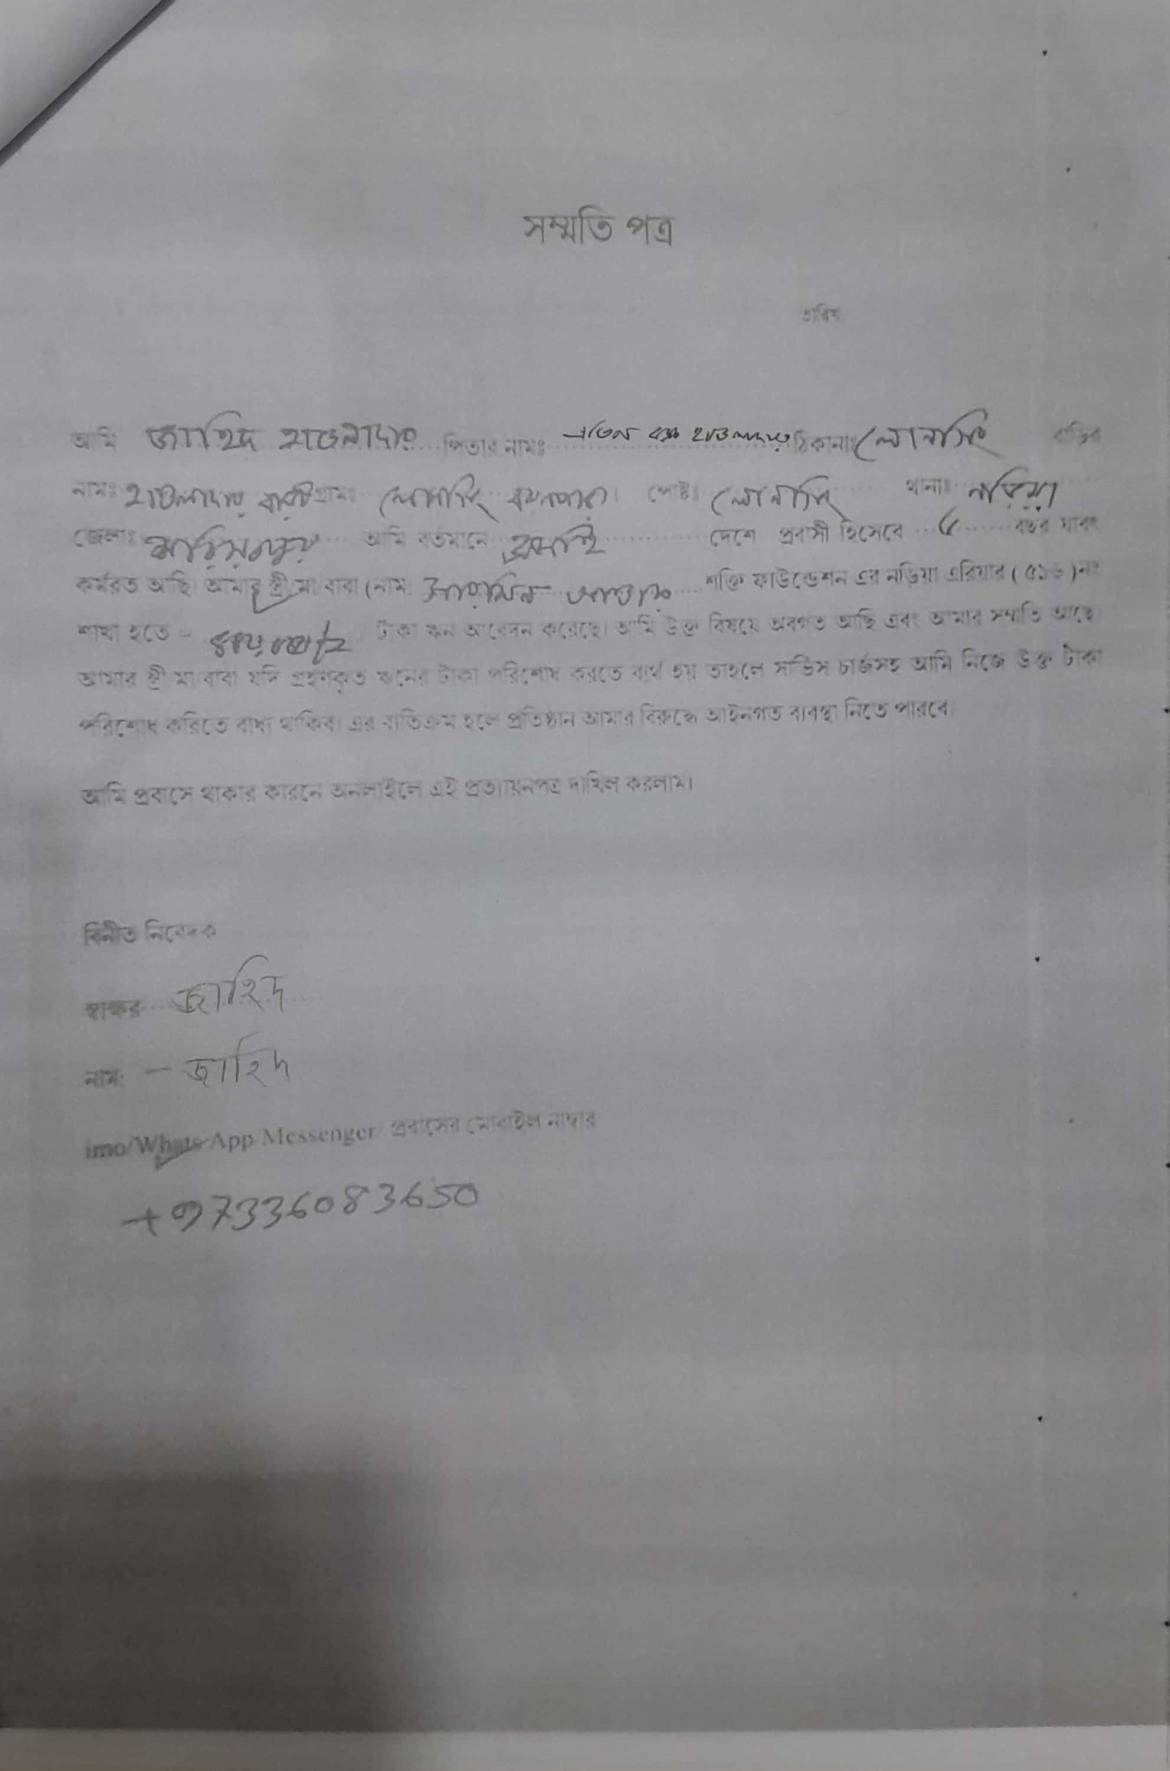 সম্মতি পত্র
তারিখ
আমি জাহিদ হাওলাদার পিতার নামঃ হাওলাদার ঠিকানাঃ লোনসিং বাড়ির
নামঃ হাওলাদার বাড়ী গ্রামঃ লোনসিং পোষ্টঃ লোনসিং থানাঃ নড়িয়া
জেলাঃ শরিয়তপুর আমি বর্তমানে দেশে প্রবাসী হিসেবে ৫ বছর যাবৎ
কর্মরত আছি। আমার স্ত্রী/মা/বাবা (নাম: শারমিন আক্তার শক্তি ফাউন্ডেশন এর নড়িয়া এরিয়ার (৫১৬)নং
শাখা হতে = টাকা ঋন আবেদন করেছে। আমি উক্ত বিষয়ে অবগত আছি এবং আমার সম্মতি আছে।
আমার স্ত্রী/মা/বাবা যদি গ্রহনকৃত ঋনের টাকা পরিশোধ করতে ব্যর্থ হয় তাহলে সার্ভিস চার্জসহ আমি নিজে উক্ত টাকা
পরিশোধ করিতে বাধ্য থাকিব। এর ব্যতিক্রম হলে প্রতিষ্ঠান আমার বিরুদ্ধে আইনগত ব্যবস্থা নিতে পারবে।
আমি প্রবাসে থাকার কারনে অনলাইলে এই প্রত্যায়নপত্র দাখিল করলাম।
বিনীত নিবেদক
স্বাক্ষর জাহিদ
নাম: - জাহিদ
imo/Whats App/Messenger/ প্রবাসের মোবাইল নাম্বার
+97336083650